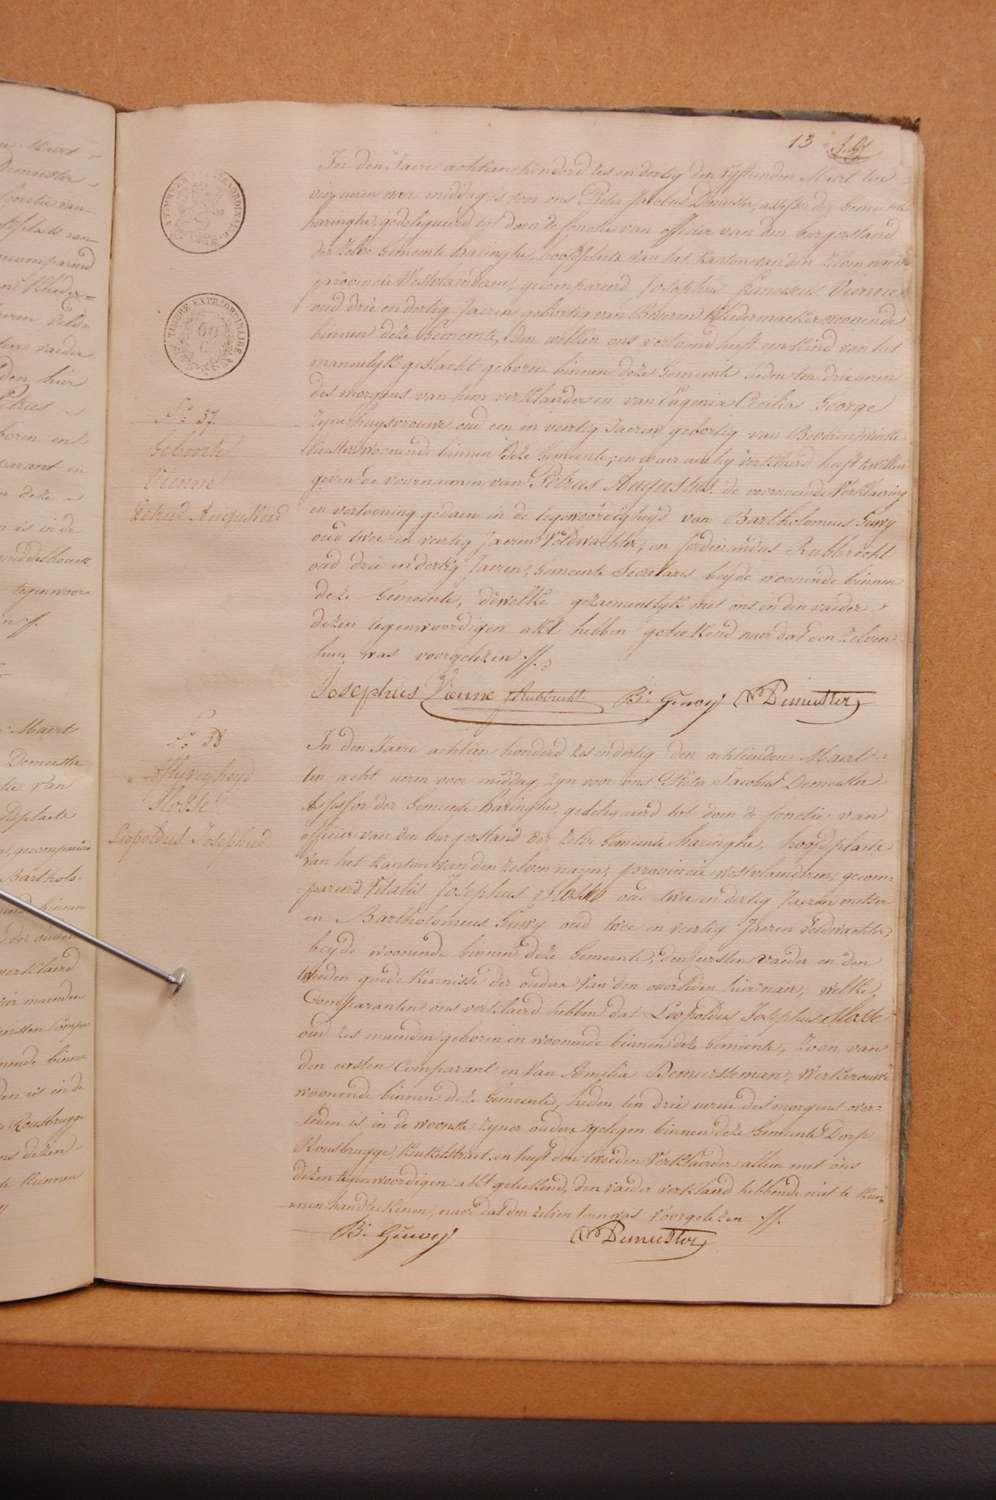 13
In den Jaere achtien honderd zes en dertig den vyftienden Maert ten
ure voor middag is voor ons Pieter Jacobus Demeester, assessor der Gemeente
haringhe, gedelegueerd tot doen de fonctie van officier van den burgerstand
der zelve Gemeente haringhe, hoofdplaets van het kanton van den zelven naem
provincie Westvlaenderen, gecompareerd Josephus Vienne
oud drie en dertig Jaeren geboortig van Beveren kleedermaeker woonende
binnen deze Gemeente, den welken ons vertoond heeft een kind van het
mannelyk geslacht geboren binnen deze Gemeente heden ten drie uren
des morgens van hem verklaerder en van Eugenia Cecilia George
zyne huysvrouwe oud een en veertig Jaeren geboortig van Beveren
woonende binnen deze Gemeente, en waer aen hy verklaerd heeft te willen
geven de voornaemen van Petrus Augustus, de voornoemde verklaering
en vertooning gedaen in de tegenwoordigheyd van Bartholomeus Guwy
oud twee en veertig Jaeren Veldwachter, en ferdinandus Rubbrecht
oud drie en dertig Jaeren, Gemeente Secretaris beyde woonende binnen
deze Gemeente, dewelke gezamentlyk met ons en den vaeder
dezen tegenwoordigen akt hebben geteekend naer dat een zelven
hun was voorgelezen //.
Josephus Vienne fRubbrecht B. Guwy Demeester
No 37.
Geboorte
Vienne
Petrus Augustus
In den Jaere achtien honderd zes en dertig den achtienden Maert
ten acht uren voor middag, zyn voor ons Pieter Jacobus Demeester
Assessor der Gemeente haringhe, gedelegueerd tot doen de fonctie van
officier van den burgerstand der zelve Gemeente haringhe, hoofdplaets
van het kanton van den zelven naem, provincie Westvlaenderen, gecom-
pareerd Vitalis Josephus oud twee en dertig Jaeren metser
en Bartholomeus Guwy oud twee en veertig Jaeren Veldwachter,
beyde woonende binnen deze Gemeente, den eersten vaeder en den
tweeden goede kennisse der ouders van den overleden hier naer, welke
Comparanten ons verklaerd hebben dat Leopoldus Josephus
oud zes maenden geboren en woonende binnen deze Gemeente, zoon van
den eersten Comparant en van Amelia Werkvrouwe
woonende binnen deze Gemeente, heden ten drie uren des morgens over-
leden is in de woonste zyner ouders gelegen binnen deze Gemeente Dorp
Rousbrugge, en heeft den tweeden Verklaerder alleen met ons
dezen tegenwoordigen akt geteekend, den vaeder verklaerd hebbende niet te kun-
nen handteekenen, naer dat den zelven hun was voorgelezen //.
B. Guwy Demeester
No 38
Aflyvigheyd
Leopoldus Josephus
TIMBRE EXTRAORDINAIRE
60